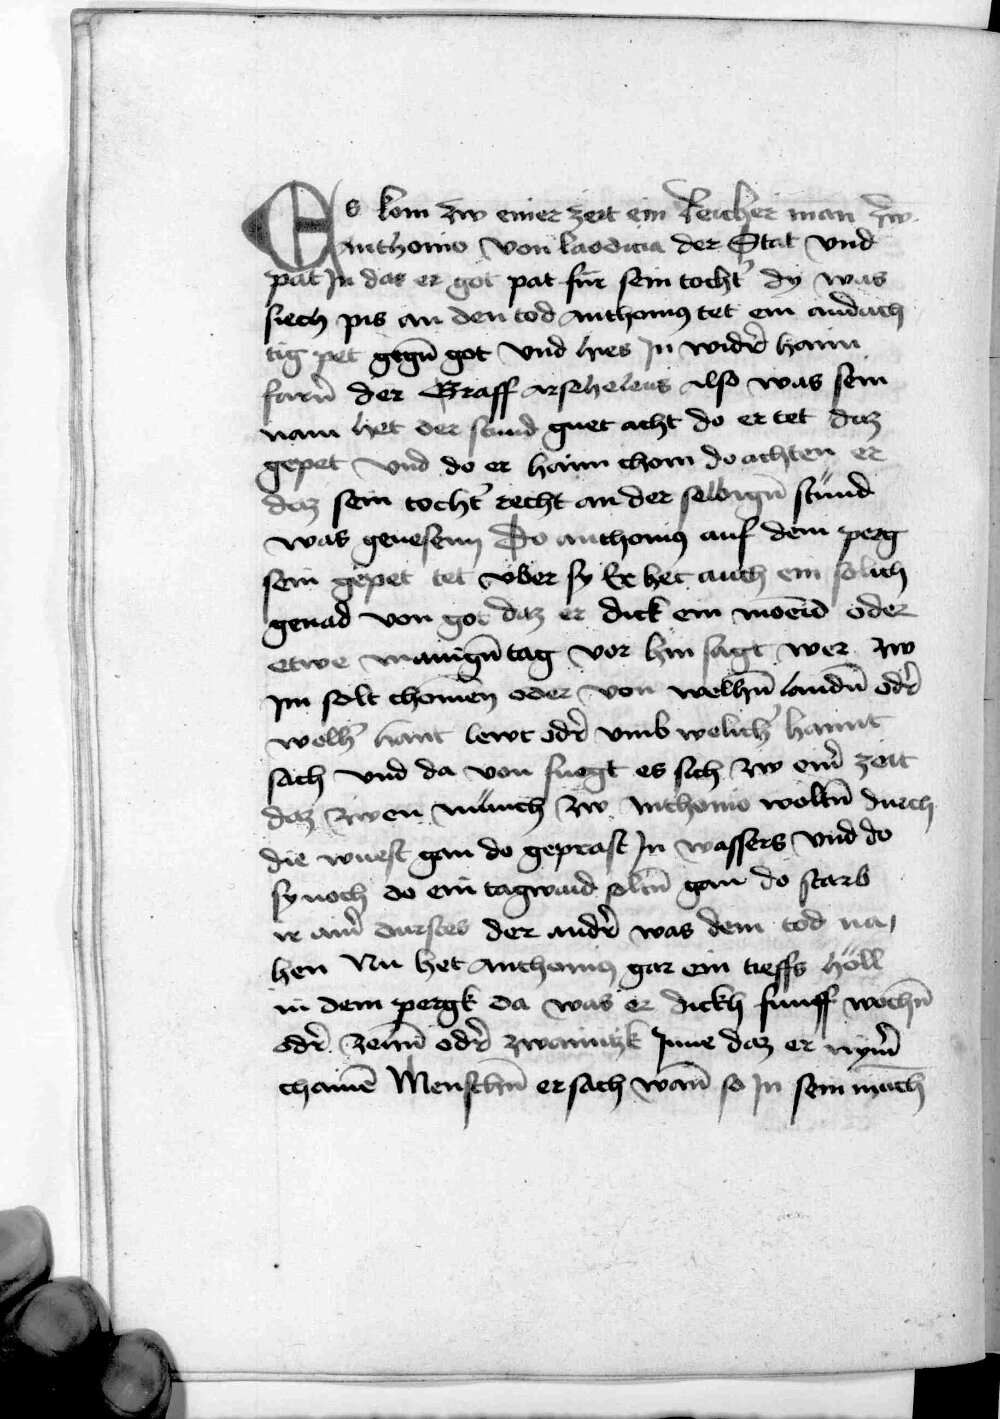 Es kom zw einer zeit ein Reicher man zw
Anthonio von laodicia der Stat vnd
pat In das er got pat für sein tocht' dy was
siech pis an den tod Anthoniꝰ tet ein andäch
tig pet gegn̄ got vnd hies In widr̄ haim
farn̄ der Graff Arsehelaus Also was sein
nam het der stund guet acht do er tet daz
gepet vnd do er haim chom do achten er
daz sein tocht' recht an der selbign̄ stünd
was genesenn Do anthoniꝰ auf dem perg
sein gepet tet vber sy Er het auch ein solich
genad von got daz er dick ein moēid oder
etwe manign̄ tag vor hin sagt wer zw
im solt chomen oder von welhn̄ landn̄ odr̄
welh' hant lewt odr̄ vmb welich' hannt
sach vnd da von fuegt es sich zw eim̄ zeit
daz zwen münch zw Anthonio woltn̄ durch
die wuest gan do geprast In wassers vnd do
sy noch do ein tagwaid soltn̄ gan do starb
ir ain̄ durstes der andr̄ was dem tod na,
hen Nu het Anthoniꝰ gar ein tieffs höll
in dem pergk da was er dickh funff wochn̄
odr̄ zehn̄ odr̄ zwaintzk Inne daz er nym̄
chainē Menschn̄ ersach wan̄ so In sein mūch